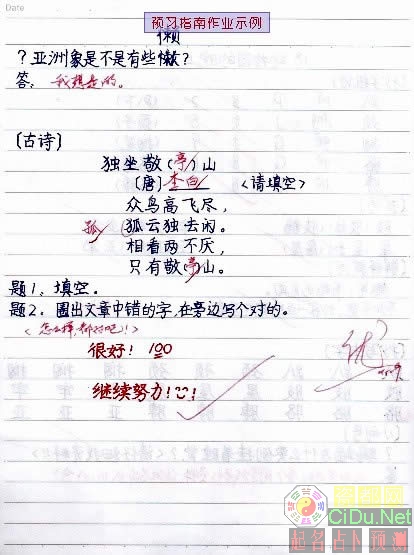 Date
预习指南作业示例
懒
?亚洲象是不是有些懒?
答:我想是的。
〔古诗〕
独坐敬(亭)山
〔唐〕李白 <请填空>
众鸟高飞尽,
孤 狐云独去闲。
相看两不厌,
只有敬(亭)山。
题1、填空。
题2、圈出文章中错的字,在旁边写个对的。
<怎么样,都对吧!>
很好!100
优
继续努力!
CiDu.Net
起名占卜预测